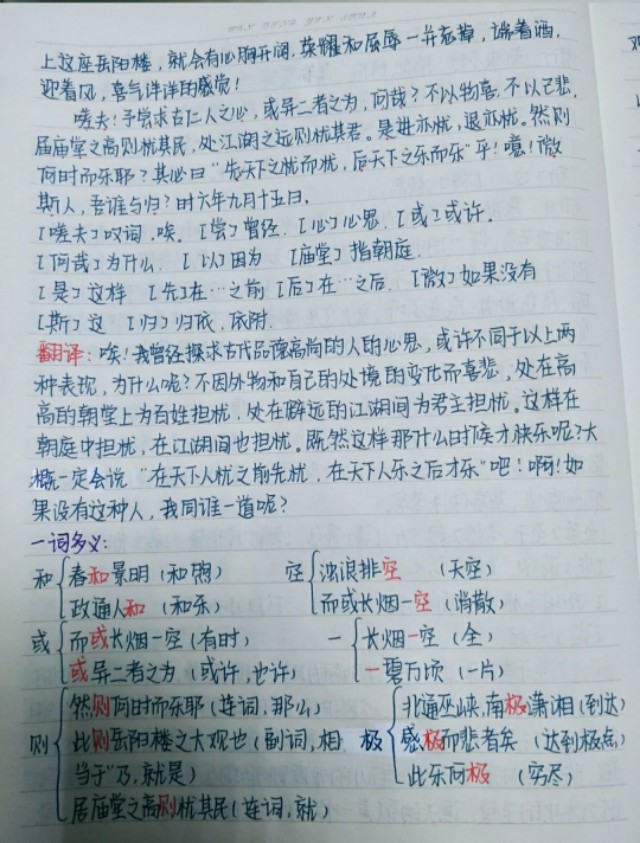 上这座岳阳楼，就会有心胸开阔，荣耀和屈辱一并忘掉，端着酒，
迎着风，喜气洋洋的感觉！
嗟夫！予尝求古仁人之心，或异二者之为，何哉？不以物喜，不以己悲，
居庙堂之高则忧其民，处江湖之远则忧其君。是进亦忧，退亦忧。然则
何时而乐耶？其必曰“先天下之忧而忧，后天下之乐而乐”乎！噫！微
斯人，吾谁与归？时六年九月十五日。
[嗟夫]叹词，唉。[尝]曾经．[心]心思．[或]或许．
[何哉]为什么．[以]因为 [庙堂]指朝庭．
[是]这样 [先]在…之前 [后]在…之后．[微]如果没有
[斯]这 [归]归依，依附．
翻译：唉！我曾经探求古代品德高尚的人的心思，或许不同于以上两
种表现，为什么呢？不因外物和自己的处境的变化而喜悲，处在高
高的朝堂上为百姓担忧，处在僻远的江湖间为君主担忧。这样在
朝庭中担忧，在江湖间也担忧。既然这样那什么时候才快乐呢？大
概一定会说“在天下人忧之前先忧，在天下人乐之后才乐”吧！啊！如
果没有这种人，我同谁一道呢？
一词多义：
和 春和景明（和煦） 空 浊浪排空（天空）
政通人和（和乐） 而或长烟一空（消散）
或 而或长烟一空（有时） 一 长烟一空（全）
或异二者之为（或许，也许） 一碧万顷（一片）
然则何时而乐耶（连词，那么） 北通巫峡，南极潇湘（到达）
则 此则岳阳楼之大观也（副词，相 极 感极而悲者矣（达到极点）
当于“乃，就是） 此乐何极（穷尽）
居庙堂之高则忧其民（连词，就）